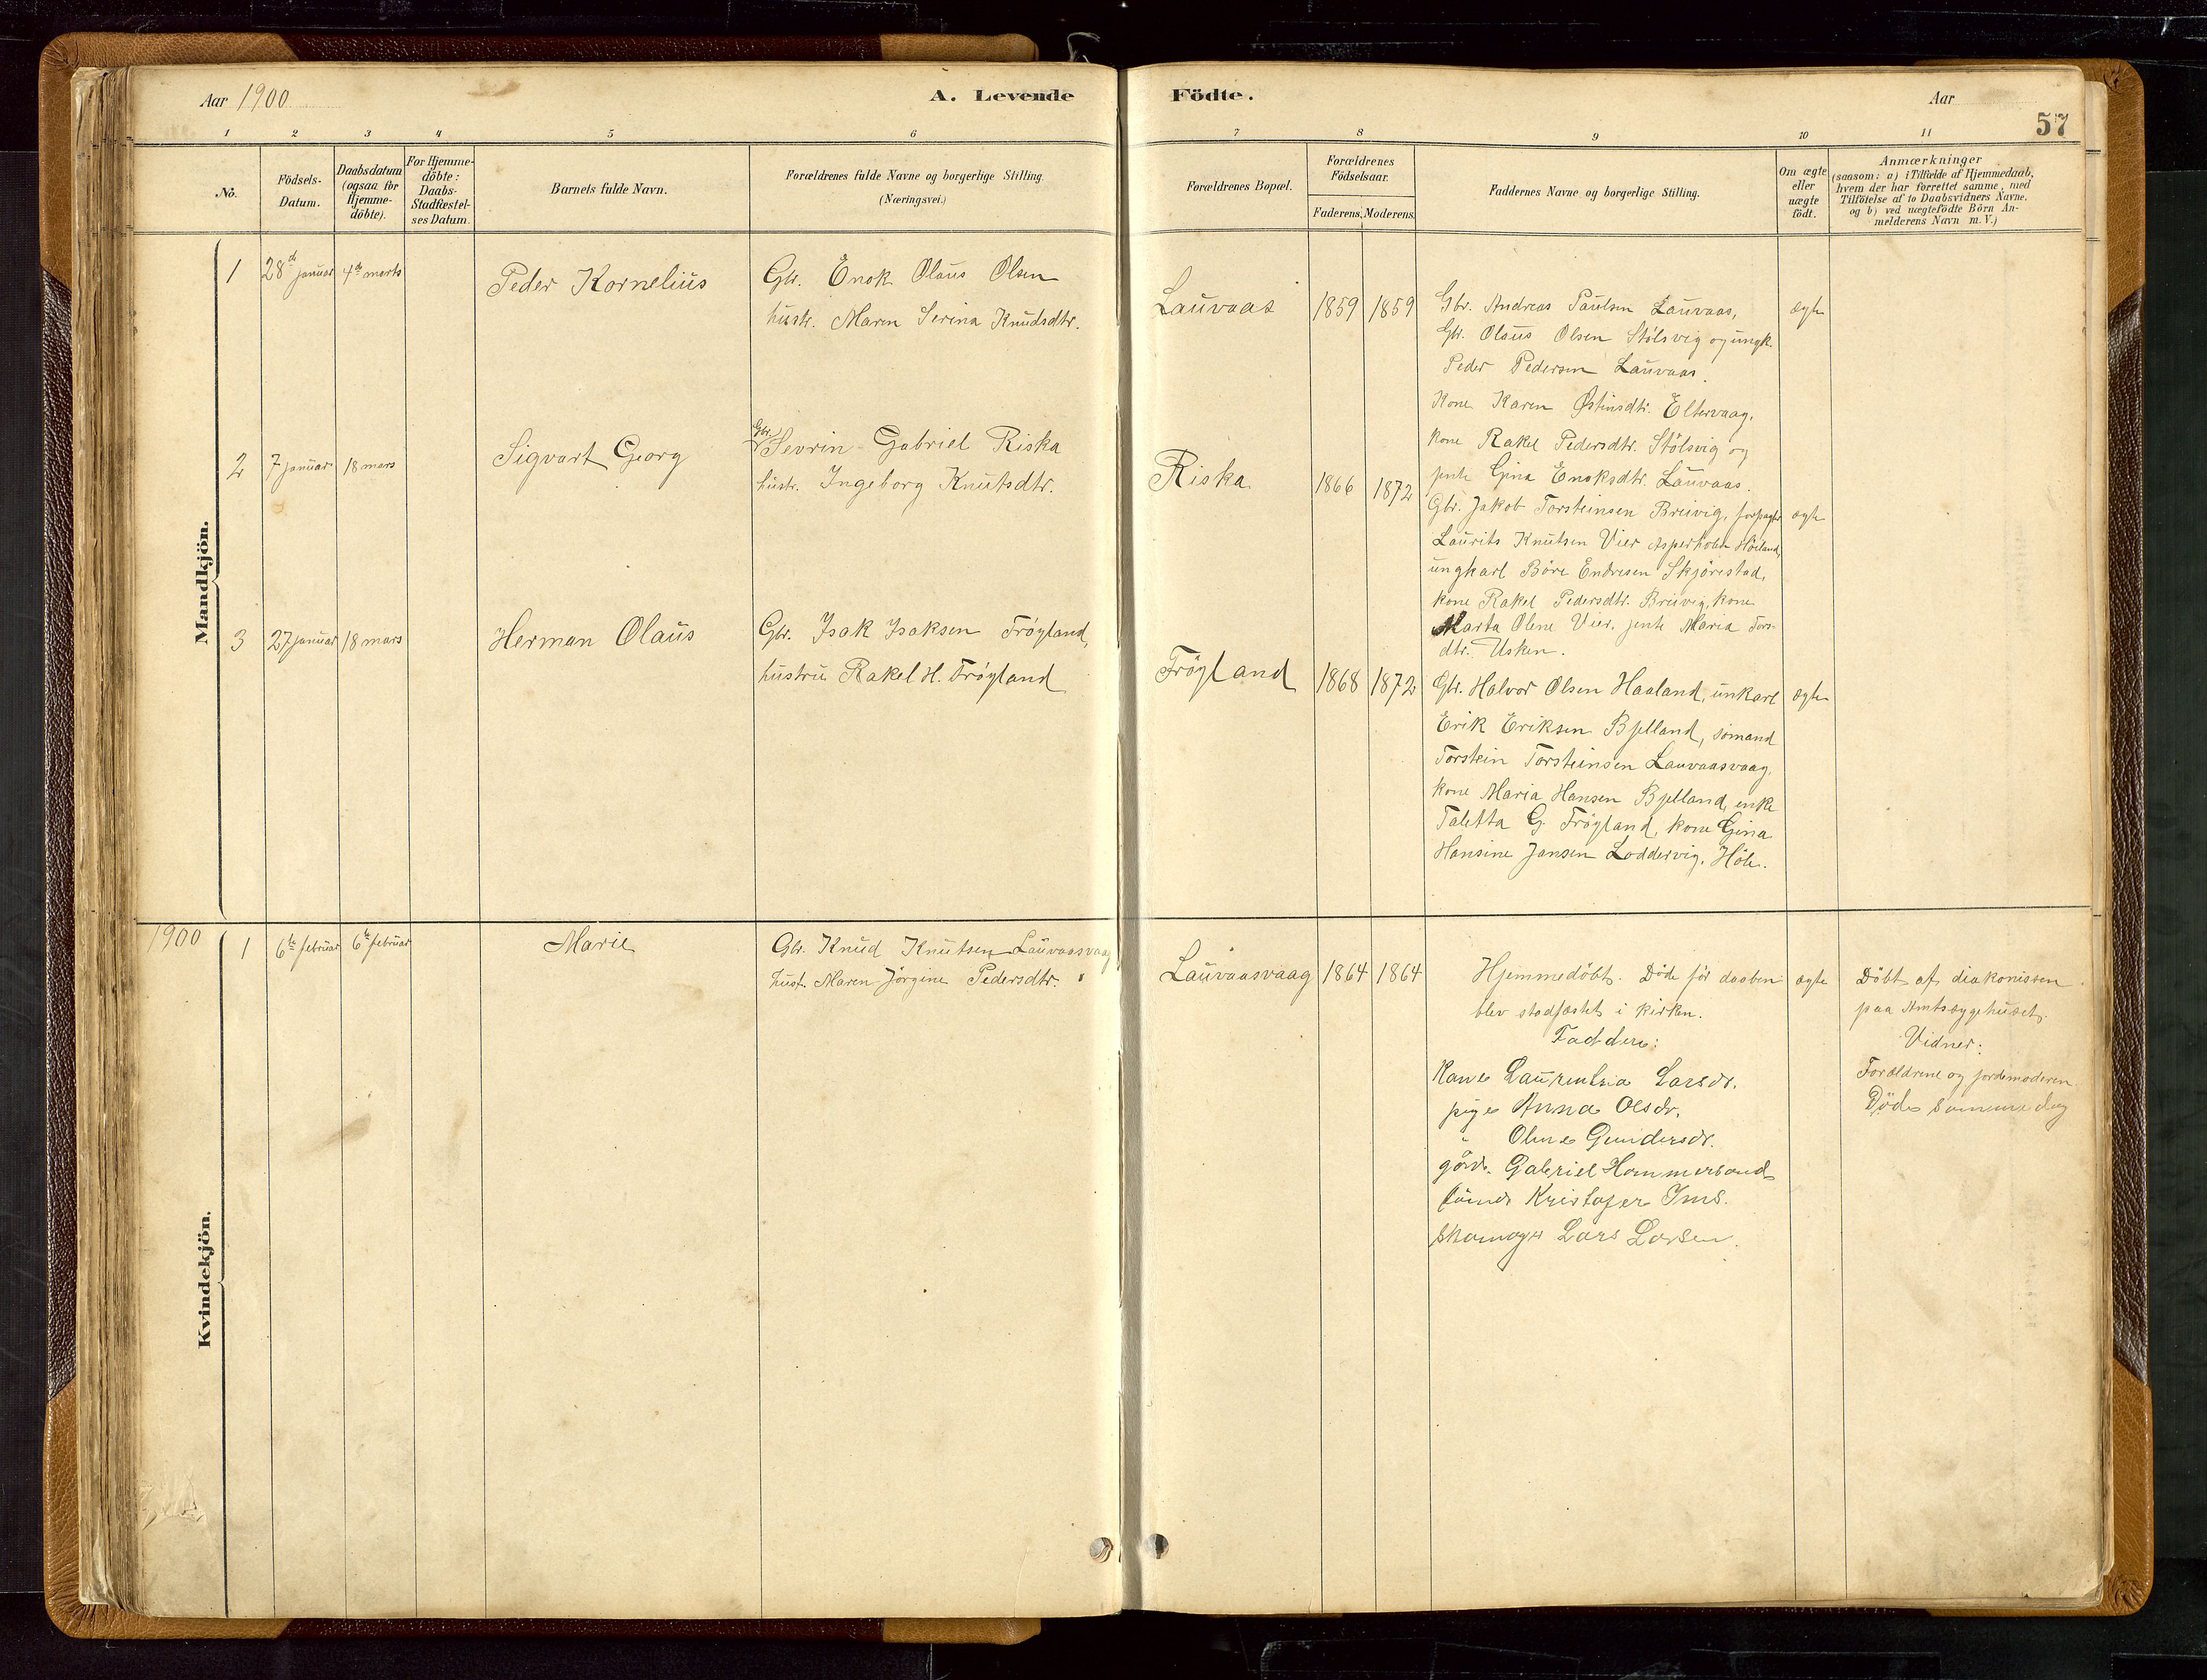 Aar 1900
A. Levende
Födte.
Aar
57
1
2
3
4
5
6
7
8
9
10
11
No.
Födsels-
Datum.
Daabsdatum
(ogsaa for
Hjemme-
döbte).
For Hjemme-
döbte:
Daabs-
Stadfæstel-
ses Datum.
Barnets fulde Navn.
Forældrenes fulde Navne og borgerlige Stilling.
(Næringsvei.)
Forældrenes Bopæl.
Forældrenes
Födselsaar.
Faderens. Moderens.
Faddernes Navne og borgerlige Stilling.
Om ægte
eller
uægte
födt.
Anmærkninger
(saasom: a) i Tilfælde af Hjemmedaab,
hvem der har forrettet samme, med
Tilföielse af to Daabsvidners Navne.
og b) ved uægtefödte Börn An-
melderens Navn m. V.)
Mandkjön.
1
28d januar
4d marts
Peder Kornelius
Gbr. Enok Olaus Olsen
hustr. Maren Serina Knudsdtr.
Lauvaas
1859
1859
Gbr. Andreas Paulsen Lauvaas,
Gbr. Olaus Olsen Stölsvig og ungk.
Peder Pedersen Lauvaas.
Kone Karen Østensdtr. Eltervaag,
kone Rakel Pedersdtr. Stölsvig og
jente Gina Enoksdtr. Lauvaas.
ægte
2
7 januar
18 mars
Sigvart Georg
Gbr. Sevrin Gabriel Riska
hustr. Ingeborg Knutsdtr.
Riska
1866
1872
Gbr. Jakob Torsteinsen Breivig, forpagter
Laurits Knutsen Vier Asperholen Höiland,
ungkarl Böre Endresen Skjörestad,
kone Rakel Pedersdtr. Breivig, kone
Marta Olene Vier, jente Maria Tors-
dtr. Usken.
ægte
3
27 januar
18 mars
Herman Olaus
Gbr. Isak Isaksen Fröyland,
hustru Rakel H. Fröyland
Fröyland
1868
1872
Gbr. Halvor Olsen Haaland, unkarl
Erik Eriksen Bjelland, sömand
Torstein Torsteinsen Lauvaasvaag,
kone Maria Hansen Bjelland, enke
Taletta G. Fröyland, kone Gina
Hansine Jansen Loddervig, Höle.
ægte
Kvindekjön.
1900
1
6te februar
6te februar
Marie
Gbr. Knud Knutsen Lauvaasvaag
hust. Maren Jörgine Pedersdtr.
Lauvaasvaag
1864
1864
Hjemmedöbt. Döde för daaben
blev stadfæstet i kirken.
Faddere:
Kone Laurentsia Larsdr.
pige Anna Olsdr.
" Oline Gundersdr.
gårdb. Gabriel Hommersand
sömd. Kristofer Ims.
skomager Lars Larsen.
ægte
Döbt af diakonissen
paa Amtssygehuset.
Vidner:
Forældrene og jordemoderen.
Döde samme dag